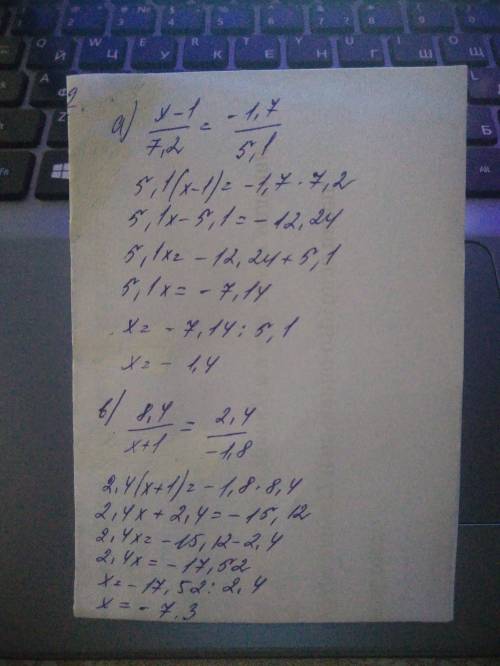 2.
а) x-1/7,2 = -1,7/5,1
5,1(x-1)=-1,7·7,2
5,1x-5,1=-12,24
5,1x=-12,24+5,1
5,1x=-7,14
x=-7,14:5,1
x=-1,4
в) 8,4/x+1 = 2,4/-1,8
2,4(x+1)=-1,8·8,4
2,4x+2,4=-15,12
2,4x=-15,12-2,4
2,4x=-17,52
x=-17,52:2,4
x=-7.3